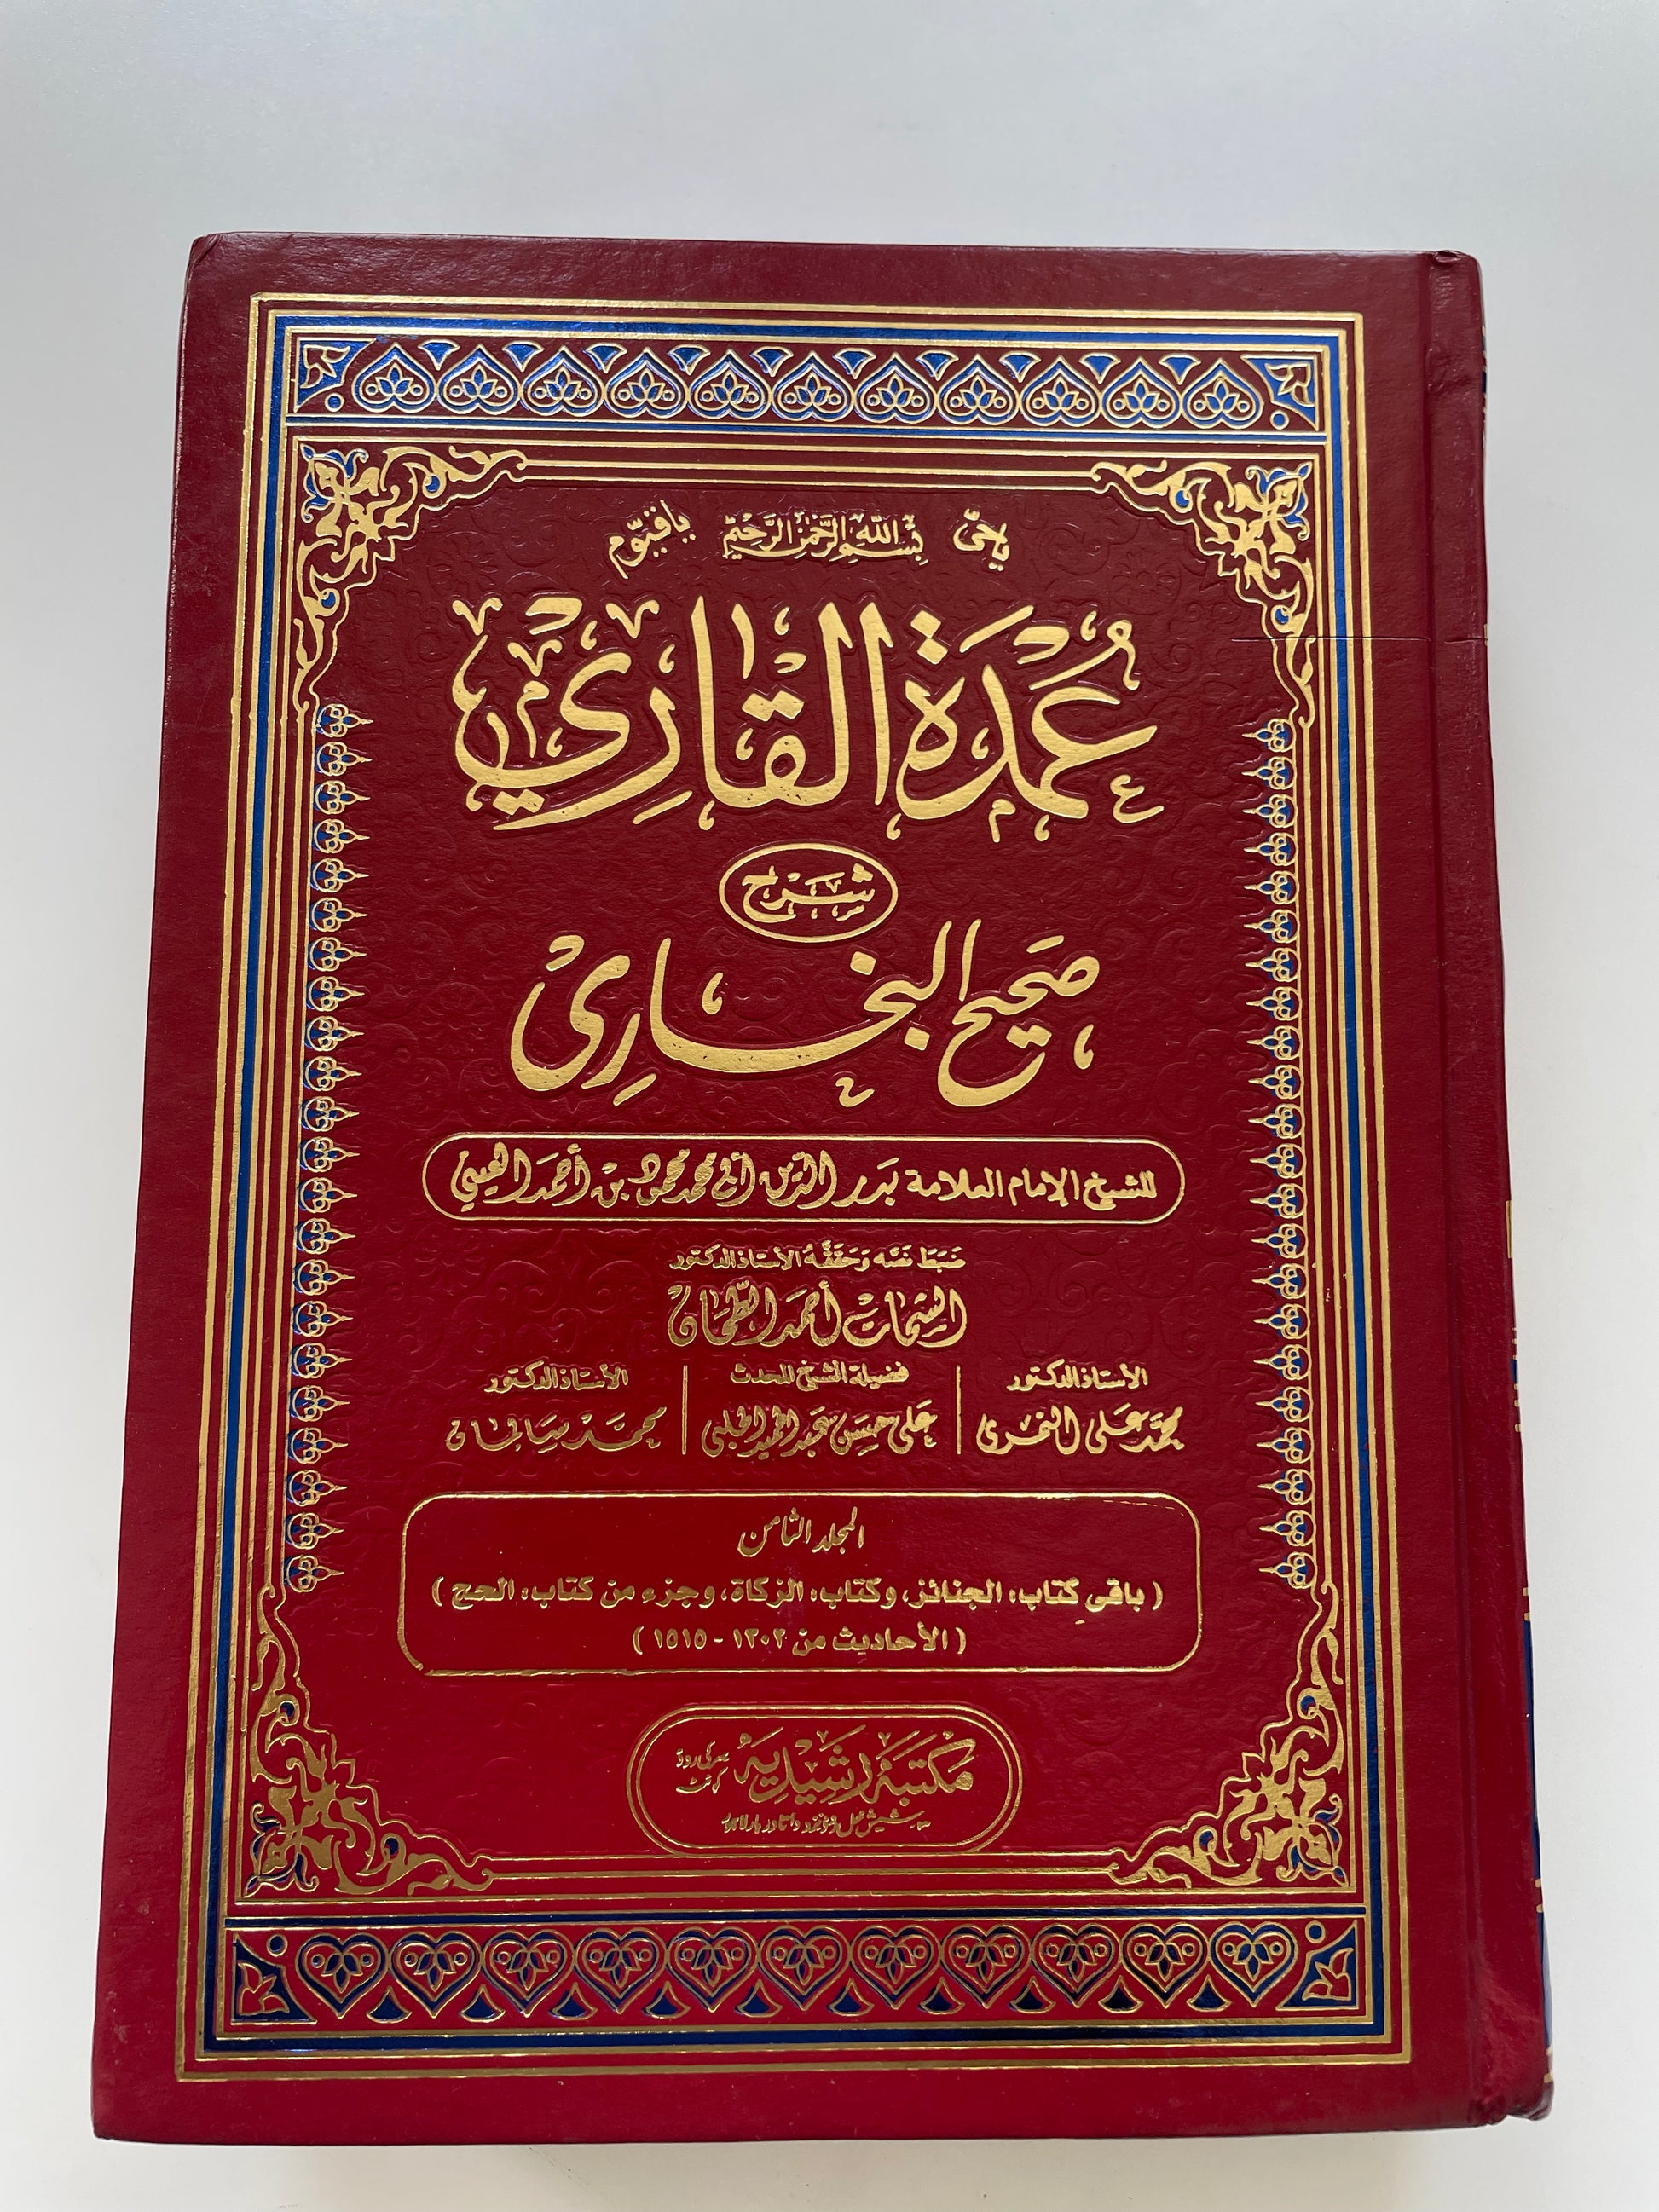 ياحي بسم الله الرحمن الرحيم ياقيوم
عُمدَة القَاري
شرح
صحيح البخاري
للشيخ الإمام العلامة بدر الدين أبي محمد محمود بن أحمد العيني
ضبط نصه وحققه الأستاذ الدكتور
السمات أحمد الطحان
الأستاذ الدكتور | فضيلة الشيخ المحدث | الأستاذ الدكتور
محمد علي النمري | علي حسن عبد الحميد الحلبي | محمد سالمان
المجلد الثامن
( باقي كتاب: الجنائز، وكتاب: الزكاة، وجزء من كتاب: الحج )
( الأحاديث من ١٣٠٢ - ١٥١٥ )
مكتبة رشيدية سرکی روڈ کوئٹہ